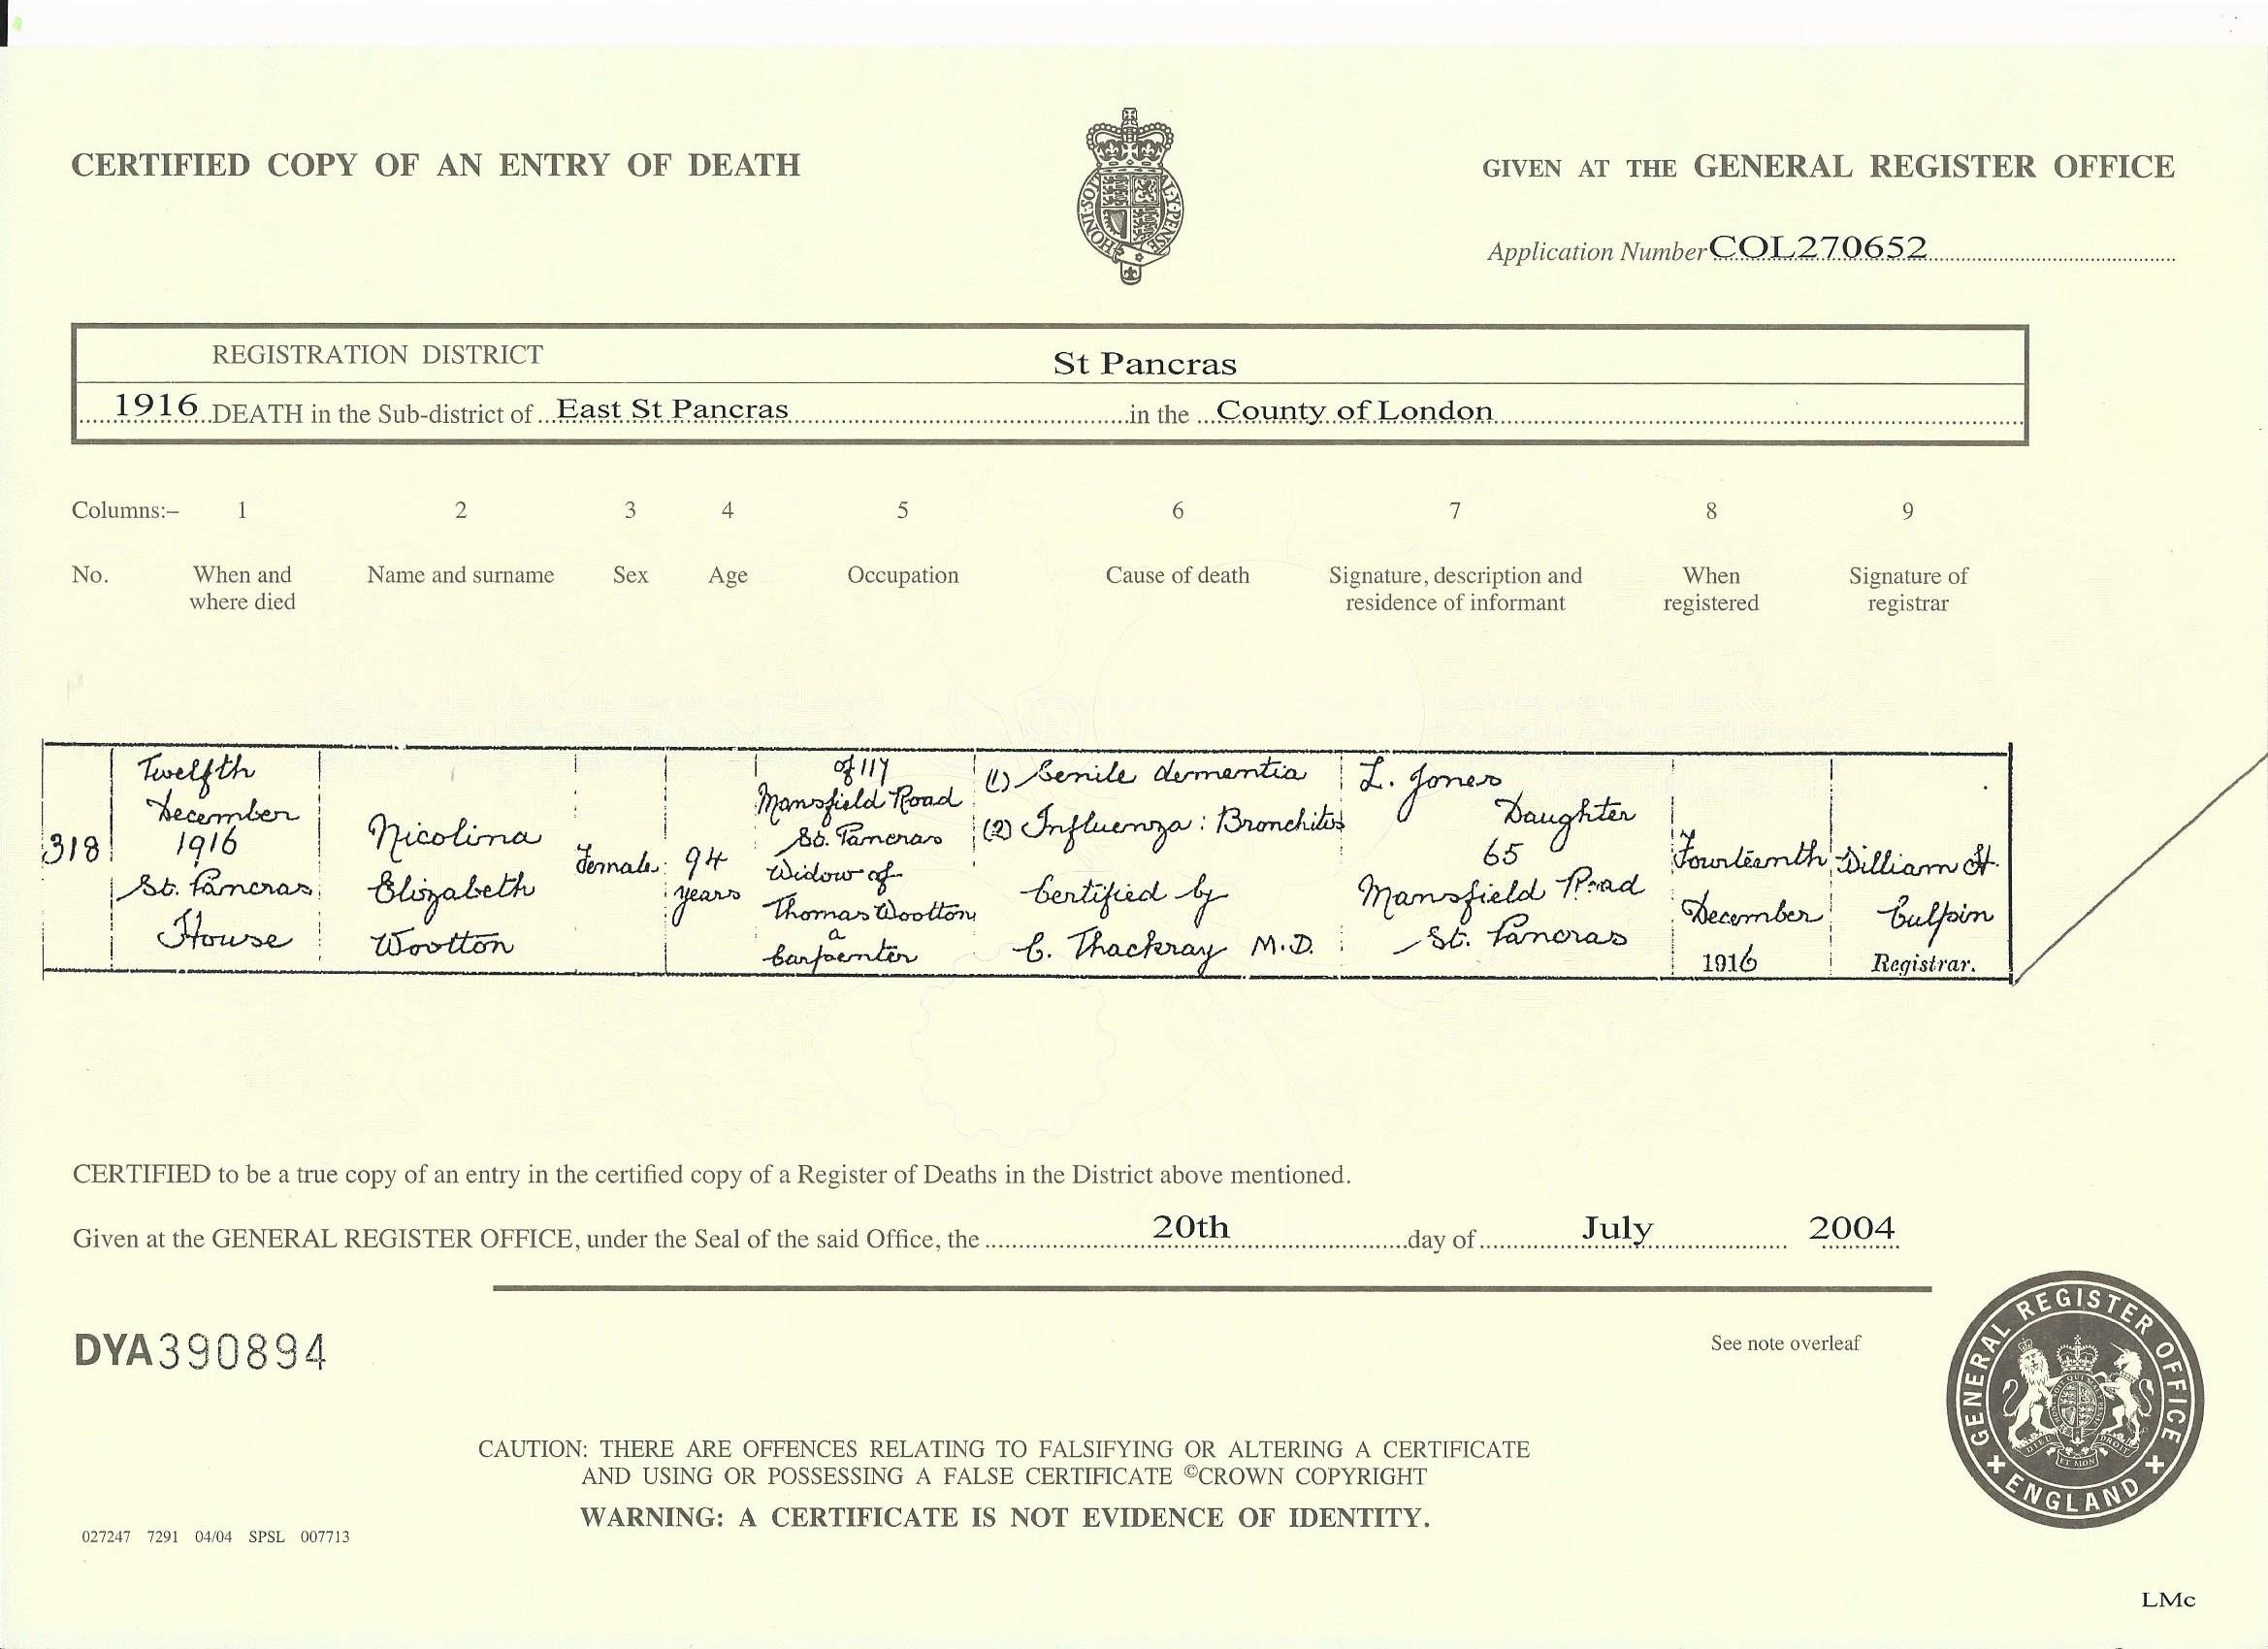 CERTIFIED COPY OF AN ENTRY OF DEATH
HONI·SOI AL·Y·PENSE
GIVEN AT THE GENERAL REGISTER OFFICE
Application Number COL270652
REGISTRATION DISTRICT St Pancras
1916 DEATH in the Sub-district of East St Pancras in the County of London
Columns:– 1 2 3 4 5 6 7 8 9
No. When and where died Name and surname Sex Age Occupation Cause of death Signature, description and residence of informant When registered Signature of registrar
318
Twelfth
December
1916
St. Pancras
House
Nicolina
Elizabeth
Wootton
Female
94
years
of 117
Mansfield Road
St. Pancras
Widow of
Thomas Wootton
a
Carpenter
(1) Senile dementia
(2) Influenza: Bronchitis
Certified by
C. Thackray M.D.
L. Jones
Daughter
65
Mansfield Road
St. Pancras
Fourteenth
December
1916
William H.
Culpin
Registrar.
CERTIFIED to be a true copy of an entry in the certified copy of a Register of Deaths in the District above mentioned.
Given at the GENERAL REGISTER OFFICE, under the Seal of the said Office, the 20th day of July 2004
DYA 390894
See note overleaf
GENERAL REGISTER OFFICE
ENGLAND
CAUTION: THERE ARE OFFENCES RELATING TO FALSIFYING OR ALTERING A CERTIFICATE
AND USING OR POSSESSING A FALSE CERTIFICATE ©CROWN COPYRIGHT
WARNING: A CERTIFICATE IS NOT EVIDENCE OF IDENTITY.
027247 7291 04/04 SPSL 007713
LMc